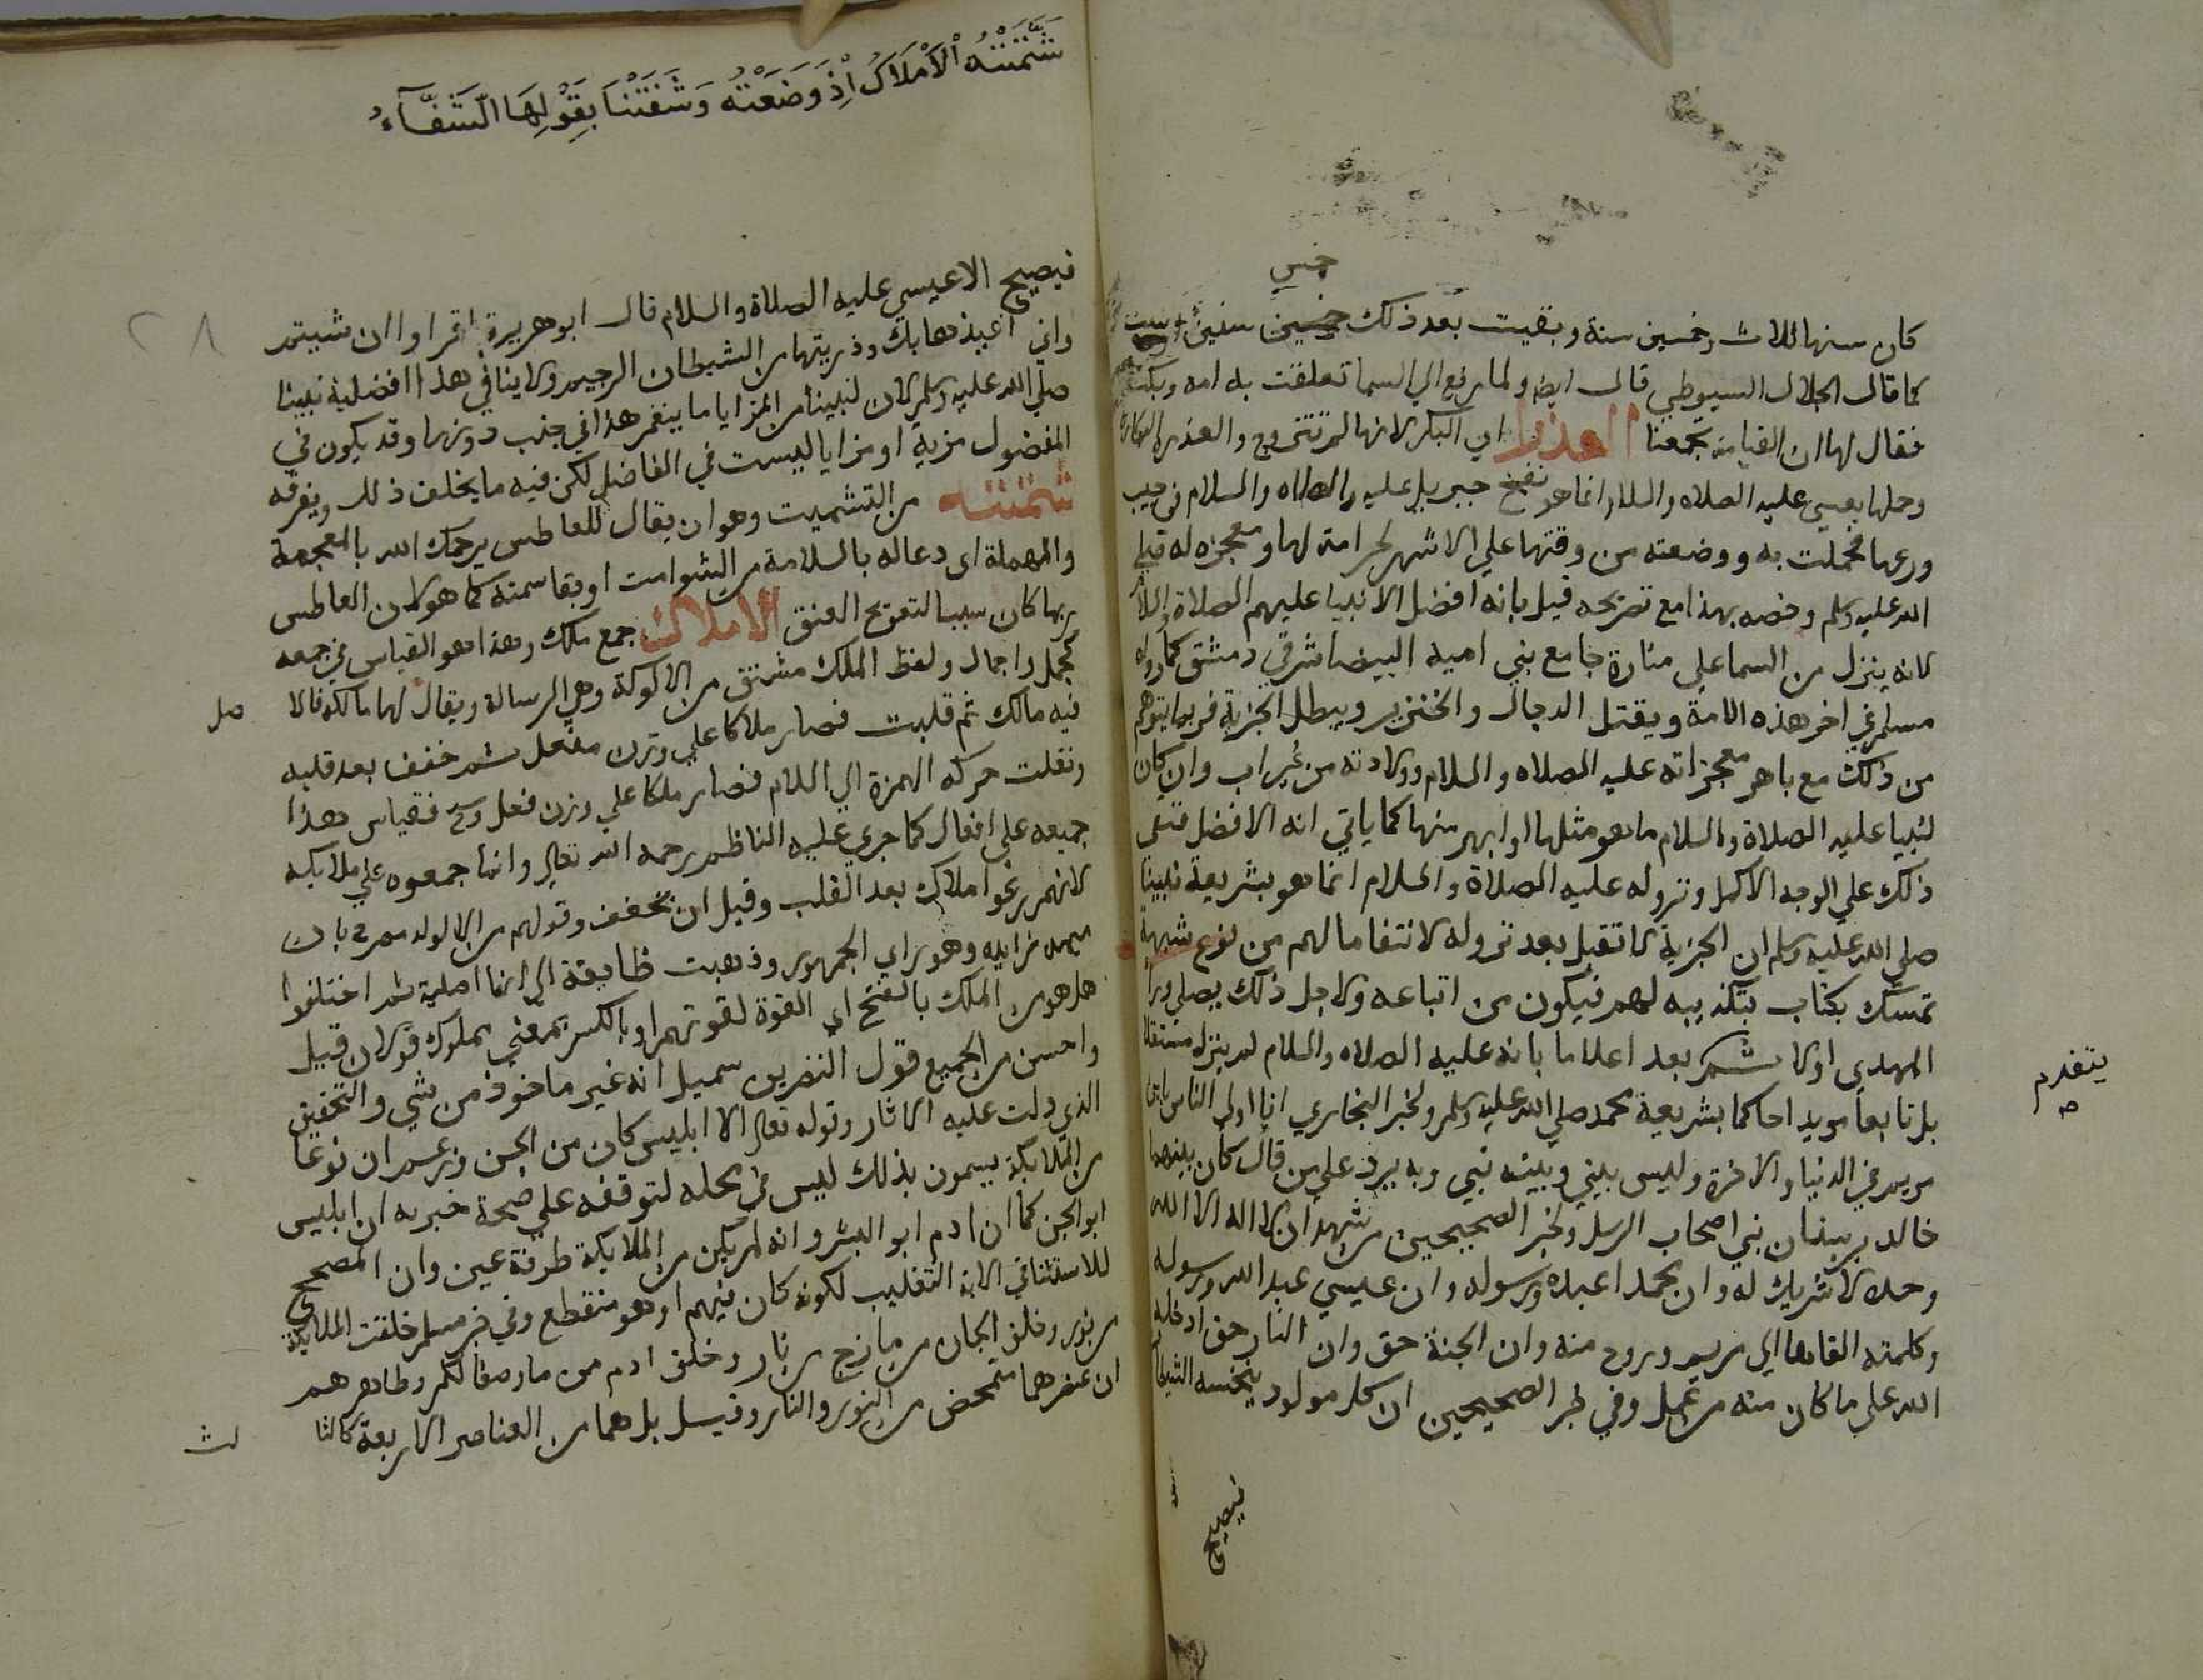 خمس
كان سنها ثلاث وخمسين سنة وبقيت بعد ذلك خمسين سنين
كما قال الجلال السيوطي قال ايضا ولما رفع الي السما تعلقت به امه وبكت
فقال لها ان القيامة تجمعنا العذرا اي البكر لانها لم تتزوج والعذره البكارة
وحملها بعيسى عليه الصلاه والسلام انما هو نفخ جبريل عليه الصلاه والسلام في جيب
درعها فحملت به ووضعته من وقتها علي الاشهر كرامة لها ومعجزه له
الله عليه وسلم وخصه بهذا مع تصريحه قيل بانه افضل الانبيا عليهم الصلاة والسلام
لانه ينزل من السما علي منارة جامع بني اميه البيضا شرقي دمشق كما رواه
مسلم في اخر هذه الامة ويقتل الدجال والخنزير ويبطل الجزية فربما يتوهم
من ذلك مع باهر معجزاته عليه الصلاه والسلام وولادته من غير اب وان كان
لنبينا عليه الصلاة والسلام ما هو مثلها او ابهر منها كما ياتي انه الافضل فنفى
ذلك علي الوجه الاكمل ونزوله عليه الصلاة والسلام انما هو بشريعة نبينا
صلي الله عليه وسلم ان الجزية لا تقبل بعد نزوله لانتفا ما لهم من نوع شبهة
تمسك بكتاب بتكذيبه لهم فيكون من اتباعه ولاجل ذلك يصلي ورا
المهدي اولا ثم بعد اعلاما بانه عليه الصلاه والسلام لم ينزل مستقلا
بل تابعا مويدا حاكما بشريعة محمد صلي الله عليه وسلم ولخبر البخاري انا اولي الناس بابن
يتقدم
صح
مريم في الدنيا والاخرة وليس بيني وبينه نبي وبه يرد علي من قال كان بينهما
خالد بن سنان نبي اصحاب الرسل ولخبر الصحيحين من شهد ان لا اله الا الله
وحده لا شريك له وان محمدا عبده ورسوله وان عيسي عبد الله ورسوله
وكلمته القاها الي مريم وروح منه وان الجنة حق وان النار حق ادخله
الله علي ما كان منه من عمل وفي خبر الصحيحين ان كل مولود ينخسه الشيطان
فيصيح
شَمَّتَتْهُ الْاَمْلَاكُ اِذْ وَضَعَتْهُ وَشَفَتْنَا بِقَوْلِهَا الشَّفَّآءُ
٢٨
فيصيح الا عيسي عليه الصلاة والسلام قال ابو هريرة اقراوا ان شيتم
واني اعيذها بك وذريتها من الشيطان الرجيم ولا ينافي هذا افضلية نبينا
صلي الله عليه وسلم لان لنبينا من المزايا ما ينغمر هذا في جنب دونها وقد يكون في
المفضول مزية او مزايا ليست في الفاضل لكن فيه ما يخلف ذلك ويفوقه
شمتته من التشميت وهو ان يقال للعاطس يرحمك الله بالمعجمة
والمهملة اي دعا له بالسلامة من الشوامت او بقا سمته كما هو لان العاطس
ربما كان سببا لتعويج العنق الاملاك جمع ملك وهذا هو القياس في جمعه
كجمل واجمال ولفظ الملك مشتق من الالوكة وهي الرسالة ويقال لها مالكه فالا
صل
فيه مالك ثم قلبت فصار ملاكا علي وزن مفعل ثم خفف بعد قلبه
ونقلت حركه الهمزة الي اللام فصار ملكا علي وزن فعل وح فقياس هذا
جمعه علي افعال كما جري عليه الناظم رحمه الله تعالي وانما جمعوه علي ملايكه
لانهم رعوا ملاك بعد القلب وقبل ان يخفف وقولهم من الالوكه صرح بان
ميمه زايده وهو راي الجمهور وذهبت طايفة الي انها اصلية ثم اختلفوا
هل هو من الملك بالفتح اي القوة لقوتهم او بالكسر بمعني مملوك قولان قيل
واحسن من الجميع قول النضر بن شميل انه غير ماخوذ من شي والتحقيق
الذي دلت عليه الاثار وقوله تعالي الا ابليس كان من الجن وزعم ان نوعا
من الملايكة يسمون بذلك ليس في محله لتوقفه علي صحة خبر به ان ابليس
ابو الجن كما ان ادم ابو البشر وانه لم يكن من الملايكة طرفة عين وان المصحح
للاستثنا في الاية التغليب لكونه كان فيهم او هو منقطع وفي خبر مسلم خلقت الملايكة
من نور وخلق الجان من مارج من نار وخلق ادم مما وصف لكم وظاهره
ان عنصرهما متمحض من النور والنار وقيل بل هما من العناصر الاربعة كالثا
لث